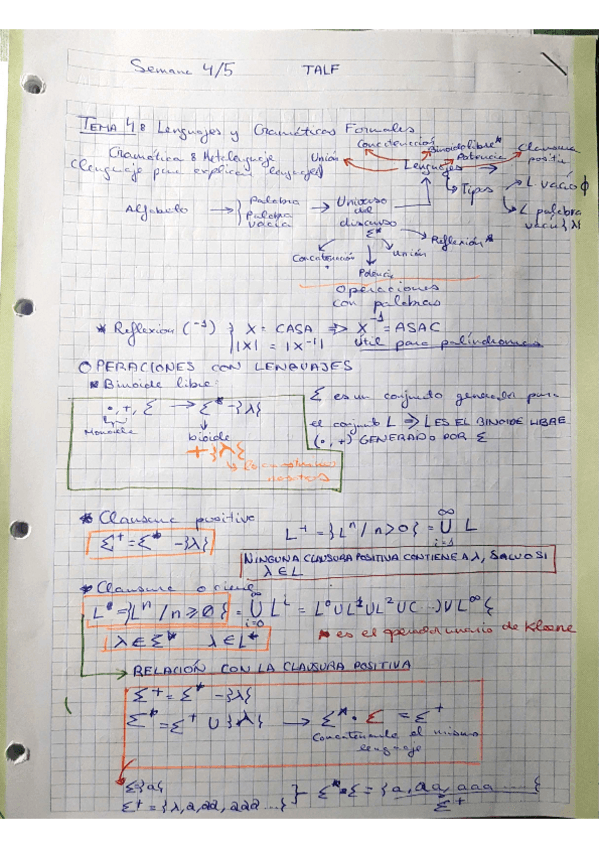 Semana 4/5 TALF
TEMA 4: Lenguajes y Gramáticas Formales
Gramática: Metalenguaje
(lenguaje para explicar lenguajes)
Unión
Concatenación
Binoide libre*
Potencia
Clausura
positiv
Lenguajes
Tipos
L vacío ϕ
L palabra
vacía {λ}
Alfabeto → { Palabra
Palabra
vacía
→ Universo
del
discurso
Σ*
Reflexión*
Concatenación
Unión
Potencia
Operaciones
con palabras
* Reflexión (⁻¹) } X = CASA ⇒ X⁻¹ = ASAC
|X| = |X⁻¹| útil para palíndromos
OPERACIONES CON LENGUAJES
* Binoide libre:
·, +, Σ → Σ* - {λ}
Monoide
bioide
+ {λ}
Σ es un conjunto generador para
el conjunto L ⇒ L ES EL BINOIDE LIBRE
(·, +) GENERADO POR Σ
* Clausura positiva
Σ⁺ = Σ* - {λ}
L⁺ = {Lⁿ / n > 0} = ∞ U i=1 L
NINGUNA CLAUSURA POSITIVA CONTIENE A λ, SALVO SI
λ ∈ L
* Clausura o cierre
L* = {Lⁿ / n ⩾ 0} = ∞ U i=0 Lⁱ = L⁰ U L¹ U L² U (...) U L∞ {
λ ∈ Σ* λ ∈ L*
* es el operador unario de Kleene
→ RELACIÓN CON LA CLAUSURA POSITIVA
Σ⁺ = Σ* - {λ}
Σ* = Σ⁺ U {λ} → Σ* · Σ = Σ⁺
Concatenando el mismo
lenguaje
Σ{a}
Σ⁺ = {λ, a, aa, aaa ...} } - Σ* · Σ = {a, aa, aaa ... {
Σ⁺